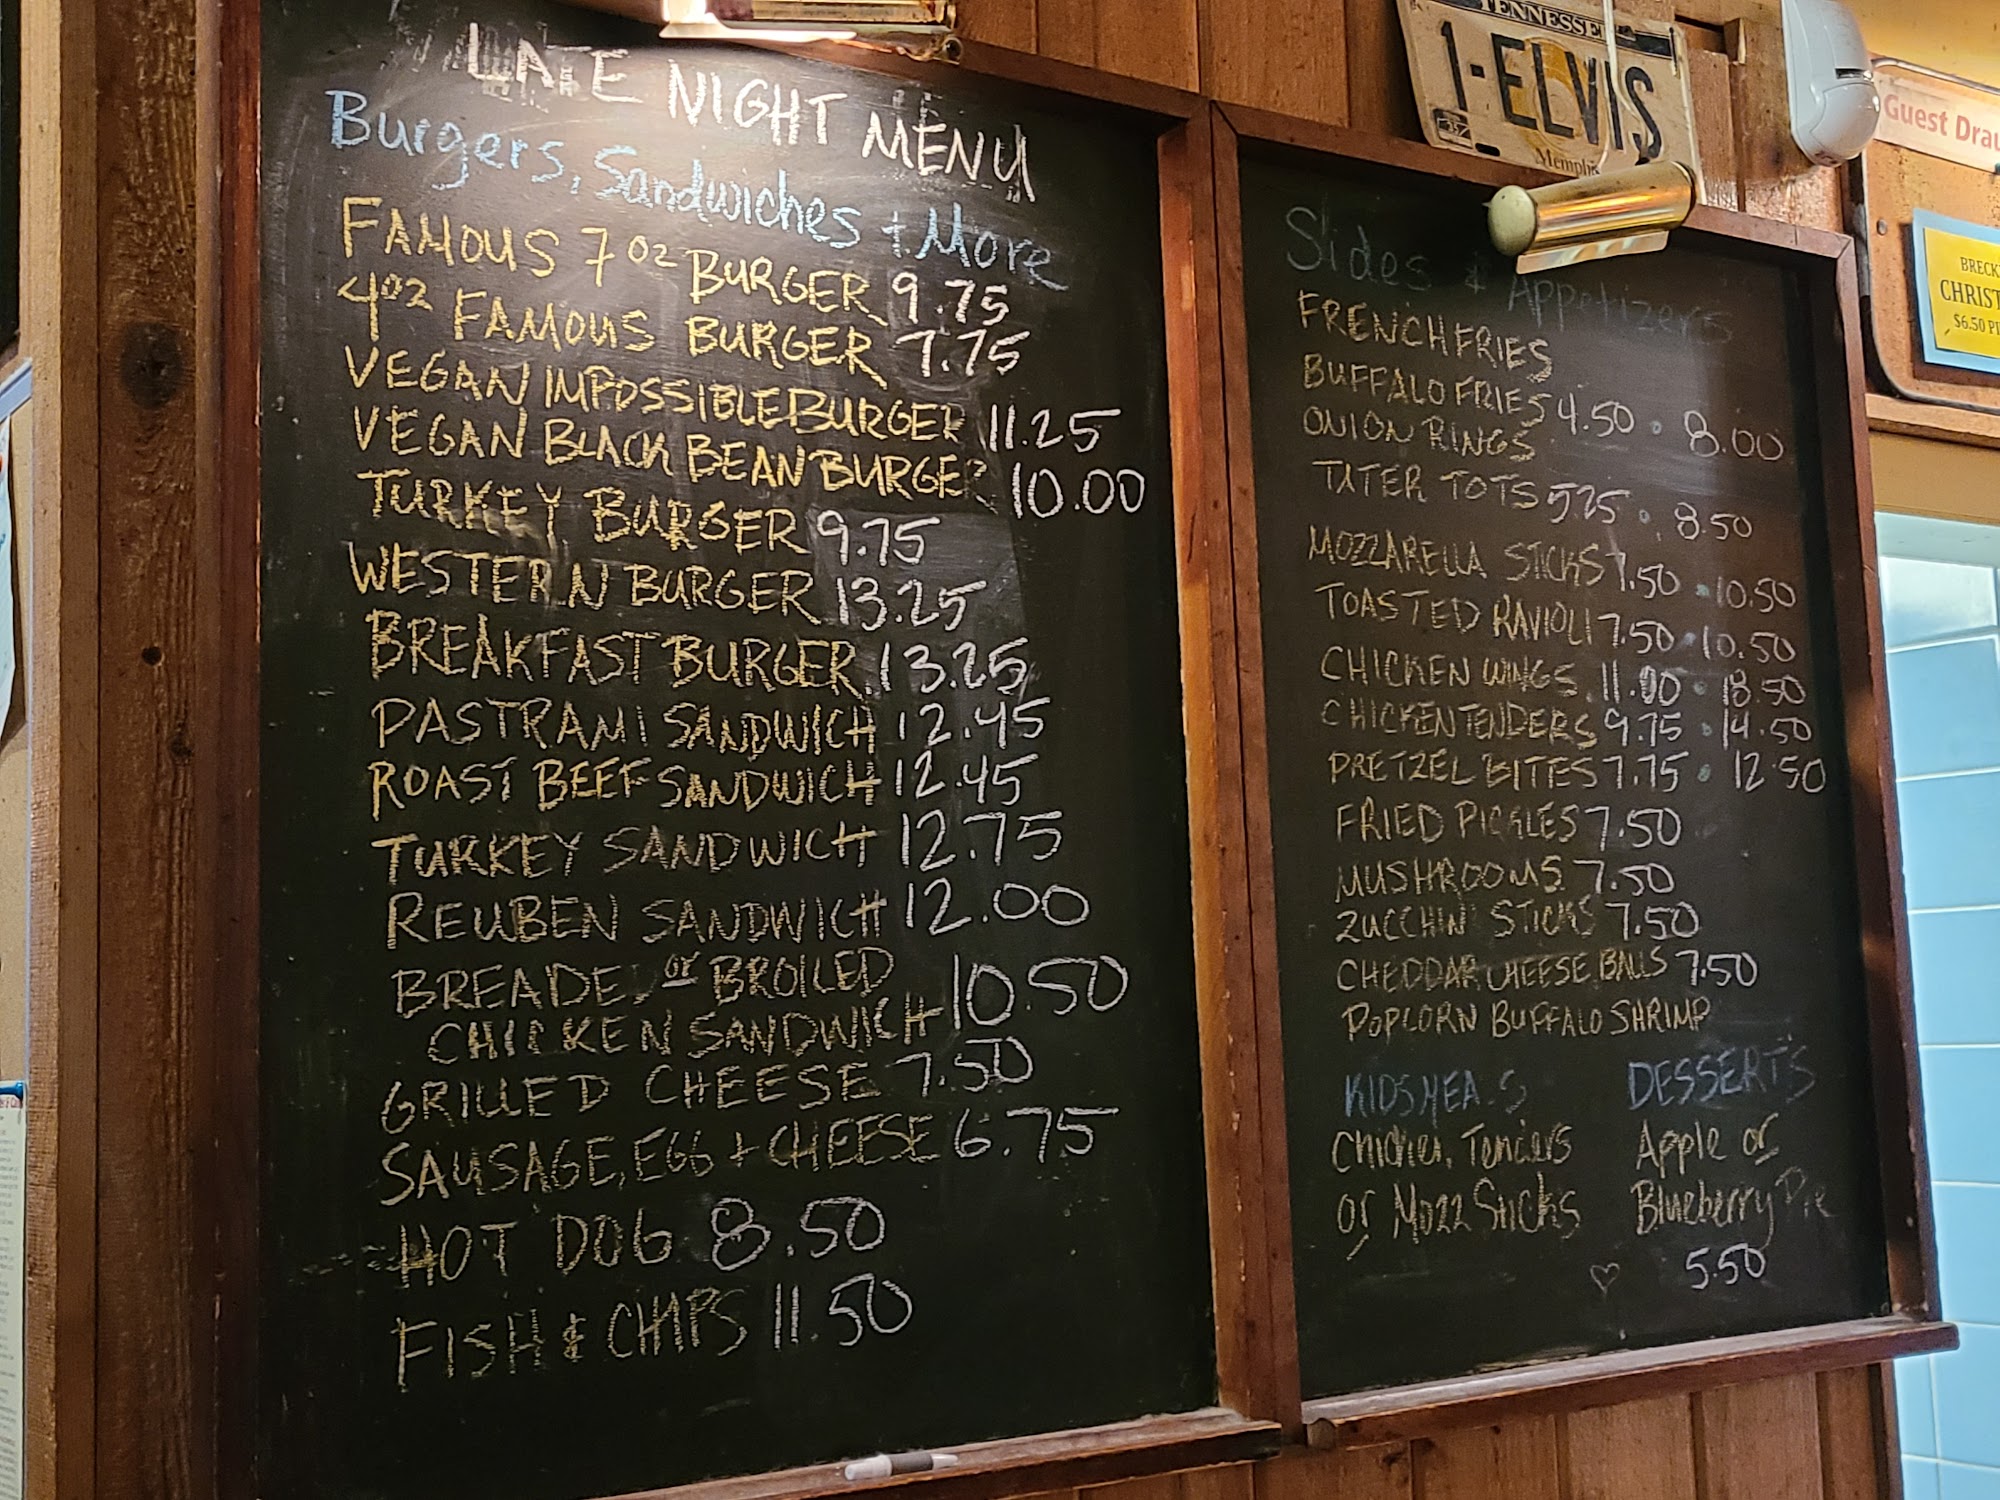 LATE NIGHT MENU
Burgers, Sandwiches + More
FAMOUS 7 oz BURGER 9.75
4oz FAMOUS BURGER 7.75
VEGAN IMPOSSIBLE BURGER 11.25
VEGAN BLACK BEAN BURGER 10.00
TURKEY BURGER 9.75
WESTERN BURGER 13.25
BREAKFAST BURGER 13.25
PASTRAMI SANDWICH 12.45
ROAST BEEF SANDWICH 12.45
TURKEY SANDWICH 12.75
REUBEN SANDWICH 12.00
BREADED or BROILED
CHICKEN SANDWICH 10.50
GRILLED CHEESE 7.50
SAUSAGE, EGG + CHEESE 6.75
HOT DOG 8.50
FISH & CHIPS 11.50
Sides & Appetizers
FRENCH FRIES
BUFFALO FRIES 4.50 • 8.00
ONION RINGS
TATER TOTS 5.25 • 8.50
MOZZARELLA STICKS 7.50 • 10.50
TOASTED RAVIOLI 7.50 • 10.50
CHICKEN WINGS 11.00 • 18.50
CHICKEN TENDERS 9.75 • 14.50
PRETZEL BITES 7.75 • 12.50
FRIED PICKLES 7.50
MUSHROOMS 7.50
ZUCCHINI STICKS 7.50
CHEDDAR CHEESE BALLS 7.50
POPCORN BUFFALO SHRIMP
KIDS MEALS
Chicken Tenders
or Mozz Sticks
DESSERTS
Apple or
Blueberry Pie
5.50
TENNESSEE
1-ELVIS
Memphis
Guest Drau
BRECK
CHRIST
$6.50 PI